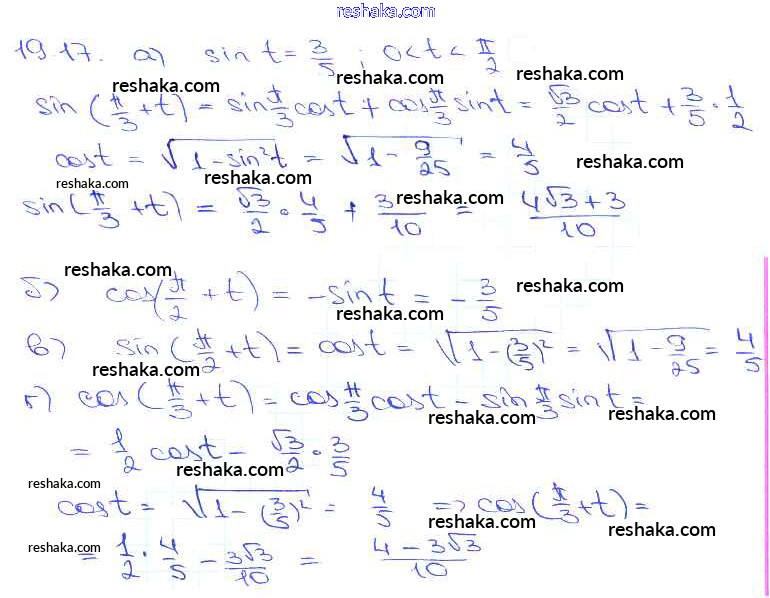 reshaka.com
19.17. а) sin t = 3/5 ; 0 < t < π/2
reshaka.com reshaka.com
sin (π/3 + t) = sin π/3 cos t + cos π/3 sin t = √3/2 cos t + 3/5 · 1/2
reshaka.com
cos t = √(1 - sin²t) = √(1 - 9/25) = 4/5 reshaka.com
reshaka.com reshaka.com
sin (π/3 + t) = √3/2 · 4/5 + 3/10 = (4√3 + 3)/10
reshaka.com reshaka.com
reshaka.com
б) cos (π/2 + t) = - sin t = - 3/5 reshaka.com
reshaka.com
в) sin (π/2 + t) = cos t = √(1 - (3/5)²) = √(1 - 9/25) = 4/5
reshaka.com reshaka.com
г) cos (π/3 + t) = cos π/3 cos t - sin π/3 sin t =
reshaka.com reshaka.com
= 1/2 cos t - √3/2 · 3/5
reshaka.com reshaka.com
cos t = √(1 - (3/5)²) = 4/5 => cos (π/3 + t) =
reshaka.com reshaka.com
reshaka.com reshaka.com
= 1/2 · 4/5 - 3√3/10 = (4 - 3√3)/10